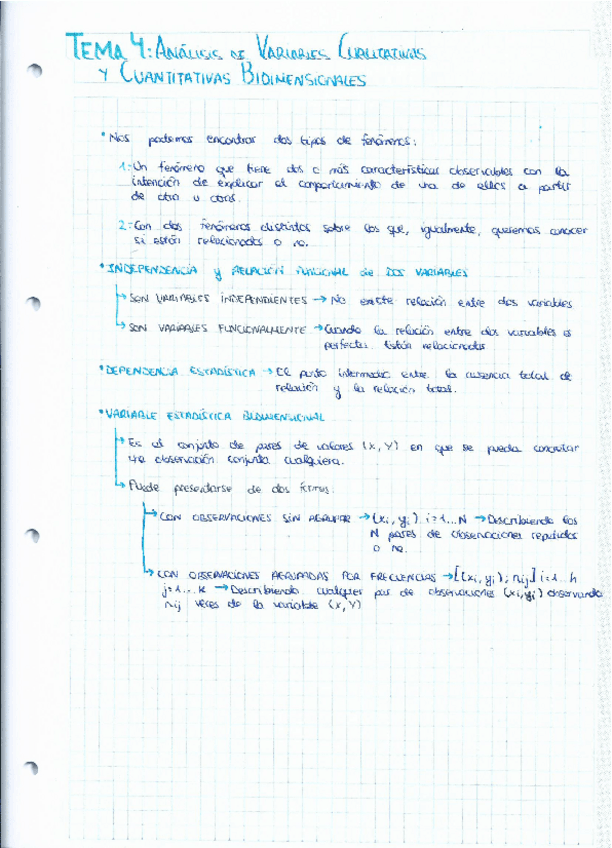 TEMA 4: ANÁLISIS DE VARIABLES CUALITATIVAS
Y CUANTITATIVAS BIDIMENSIONALES
• Nos podemos encontrar dos tipos de fenómenos:
1.- Un fenómeno que tiene dos o más características observables con la
intención de explicar el comportamiento de una de ellas a partir
de otra u otras.
2.- Con dos fenómenos distintos sobre los que, igualmente, queremos conocer
si están relacionados o no.
• INDEPENDENCIA y RELACIÓN FUNCIONAL de DOS VARIABLES
→ SON VARIABLES INDEPENDIENTES → No existe relación entre dos variables
→ SON VARIABLES FUNCIONALMENTE → Cuando la relación entre dos variables es
perfecta. Están relacionadas
• DEPENDENCIA ESTADÍSTICA → El punto intermedio entre la ausencia total de
relación y la relación total.
• VARIABLE ESTADÍSTICA BIDIMENSIONAL
→ Es el conjunto de pares de valores (X, Y) en que se pueda concretar
una observación conjunta cualquiera.
→ Puede presentarse de dos formas:
→ CON OBSERVACIONES SIN AGRUPAR → (xi, yi) i=1...N → Describiendo los
N pares de observaciones repetidos
o no.
→ CON OBSERVACIONES AGRUPADAS POR FRECUENCIAS → [(xi, yj); nij] i=1...h
j=1...k → Describiendo cualquier par de observaciones (xi, yj) observando
nij veces de la variable (X, Y)